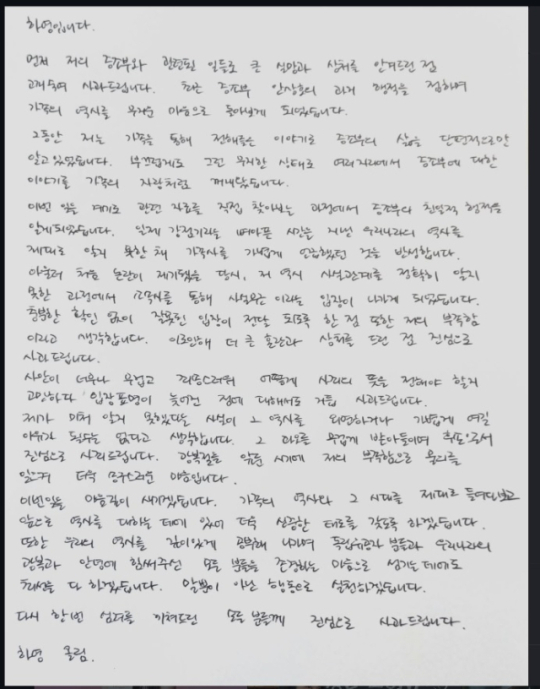 하영입니다.
먼저 저의 증조부와 관련된 일들로 큰 실망과 상처를 안겨드린 점
고개숙여 사과드립니다. 최근 증조부 의 과거 행적을 접하며
가족의 역사를 무거운 마음으로 돌아보게 되었습니다.
그동안 저는 가족을 통해 전해들은 이야기로 증조부의 삶을 단편적으로만
알고 있었습니다. 부끄럽게도 그런 무지한 상태로 여러 자리에서 증조부에 대한
이야기를 가족의 자랑처럼 꺼내왔습니다.
이번 일을 계기로 관련 자료를 직접 찾아보는 과정에서 증조부의 친일적 행적을
알게되었습니다. 일제 강점기라는 뼈아픈 시간을 지닌 우리나라의 역사를
제대로 알지 못한 채 가족사를 가볍게 언급했던 것을 반성합니다.
아울러 처음 논란이 제기됐을 당시, 저 역시 사실관계를 정확히 알지
못한 과정에서 소속사를 통해 사실무근 이라는 입장이 나가게 되었습니다.
충분한 확인 없이 잘못된 입장이 전달 되도록 한 점 또한 저의 부족함
이라고 생각합니다. 이로인해 더 큰 혼란과 상처를 드린 점 진심으로
사과드립니다.
사안이 너무나 무겁고 조심스러워 어떻게 사죄의 뜻을 전해야 할지
고민하다 입장표명이 늦어진 점에 대해서도 거듭 사과드립니다.
제가 미처 알지 못했다는 사실이 그 역사를 외면하거나 가볍게 여길
이유가 될수는 없다고 생각합니다. 그 과오를 무겁게 받아들이며 후손으로서
진심으로 사죄드립니다. 광복절을 앞둔 시기에 저의 부족함으로 물의를
일으켜 더욱 송구스러운 마음입니다.
이번일을 마음깊이 새기겠습니다. 가족의 역사와 그 시대를 제대로 들여다보고
앞으로 역사를 대하는 데에 있어 더욱 신중한 태도를 갖도록 하겠습니다.
또한 우리의 역사를 깊이있게 공부해 나가며 독립유공자 분들과 우리나라의
광복과 안녕에 힘써주신 모든 분들을 존경하는 마음으로 섬기는 데에도
최선을 다 하겠습니다. 말뿐이 아닌 행동으로 실천하겠습니다.
다시 한번 심려를 끼쳐드린 모든 분들께 진심으로 사과드립니다.
하영 올림.